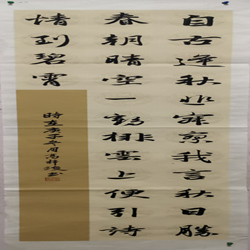 自古逢秋悲寂寥我言秋日勝
春朝晴空一鶴排雲上便引詩
情到碧霄
時在庚子冬月